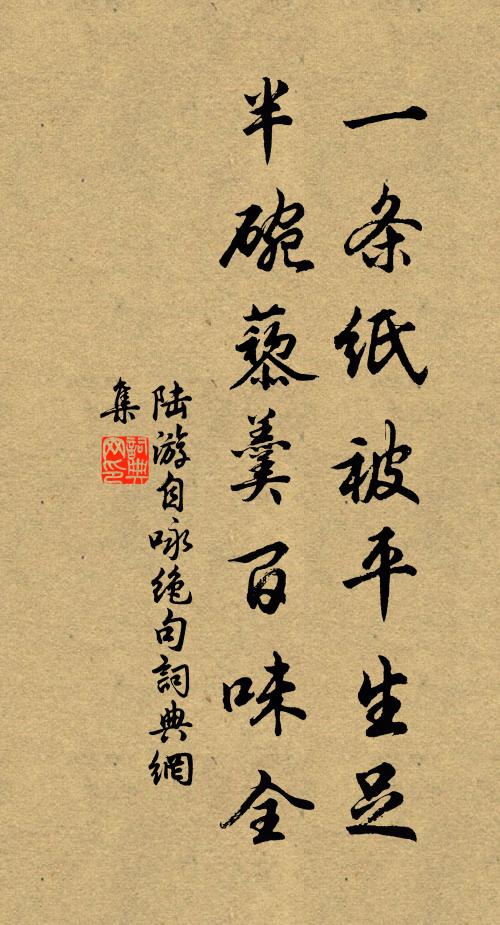 一条纸被平生足
半碗藜羹百味全
陆游自咏绝句詞典網
集
詞典网印